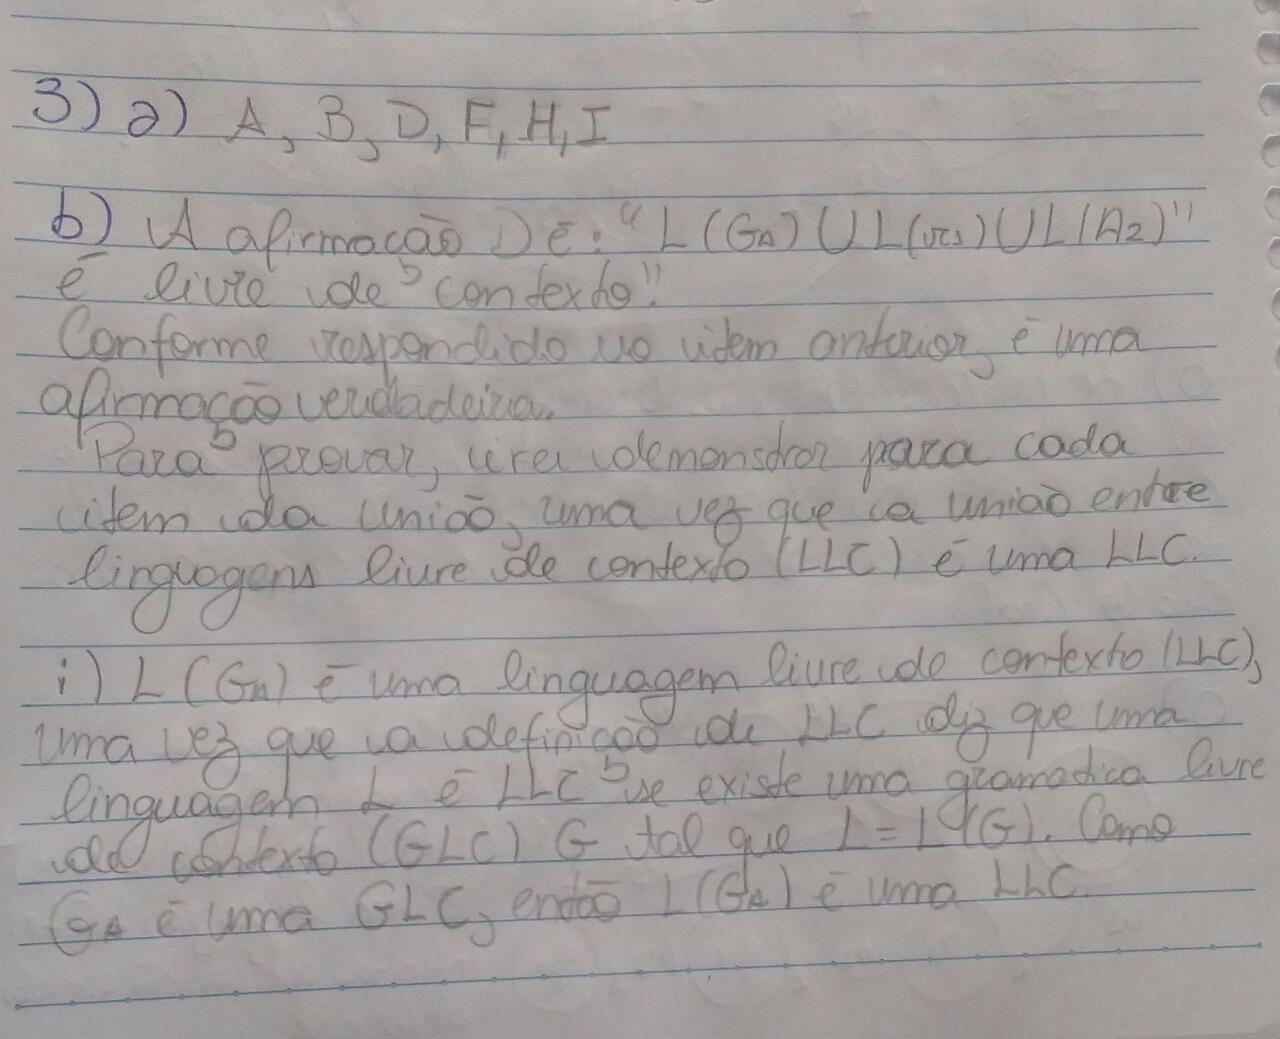 3) a) A, B, D, F, H, I
b) A afirmação D é: "L(GA) U L(re1) U L(A2)"
é livre de contexto".
Conforme respondido no item anterior, é uma
afirmação verdadeira.
Para provar, irei demonstrar para cada
item da união, uma vez que a união entre
linguagens livre de contexto (LLC) é uma LLC.
i) L(GA) é uma linguagem livre de contexto (LLC),
uma vez que a definição de LLC diz que uma
linguagem L é LLC se existe uma gramatica livre
de contexto (GLC) G tal que L = L(G). Como
GA é uma GLC, então L(GA) é uma LLC.